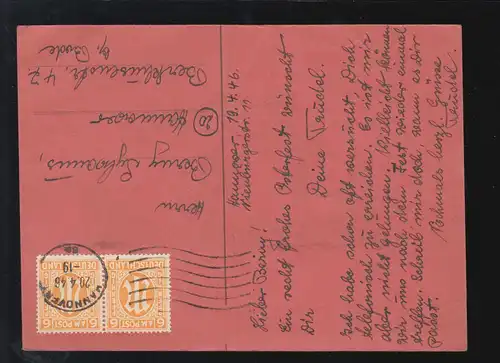 Hannover 19.4.46.
Nienburgerstr. 11
Lieber Berny!
Ein recht frohes Osterfest wünscht
Dir
Deine Trudel.
Ich habe schon oft versucht Dich
telefonisch zu erreichen. Es ist mir
aber nicht gelungen. Vielleicht können
wir uns nach dem Fest wieder einmal
treffen. Schreib mir doch wann es Dir
passt.
Nochmals herzl. Grüsse
Trudel.
Herrn
Berny
(20) Hannover
47
Bode
6 AM POST 6
DEUTSCHLAND
6 AM POST 6
DEUTSCHLAND
HANNOVER
20.4.46
-19